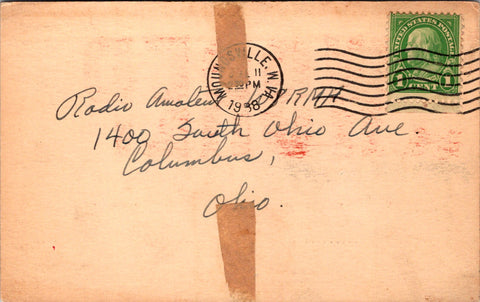 UNITED STATES POSTAGE
1 CENT 1
MOUNDSVILLE, W.VA.
11
PM
1938
Radio Amateur PRMH
1400 South Ohio Ave.
Columbus,
Ohio.